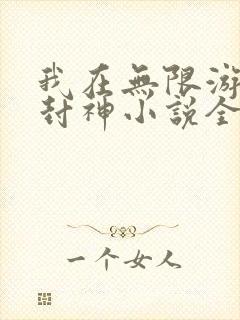 我在無限游
封神小説全
一个女人